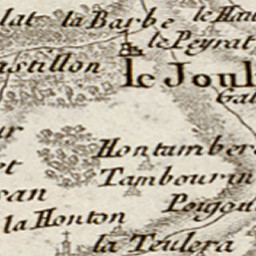 lat la Barbe le Hau
le Peyrat
astillon
le Joul
Gal
ur
Hontambere
et Tambourin
san Poigou
la Honton
la Teulera